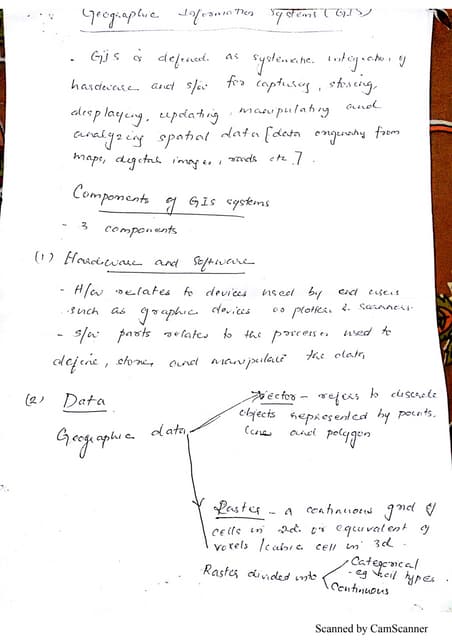 Geographic Information Systems (GIS)
. GIS is defined as systematic integration of
hardware and s/w for capturing, storing,
displaying, updating, manipulating and
analyzing spatial data [data originating from
maps, digital images, roads etc.].
Components of GIS systems
- 3 components
(1) Hardware and Software
- H/w relates to devices used by end users
such as graphic devices or plotters & scanners
- s/w parts relates to the processes used to
define, store and manipulate the data
(2) Data
Geographic data
Vector - refers to discrete
objects represented by points,
line and polygon
Raster - a continuous grid of
cells in 2d or equivalent of
voxels / cubic cell in 3d.
Raster divided into
Categorical
eg soil types.
Continuous
Scanned by CamScanner